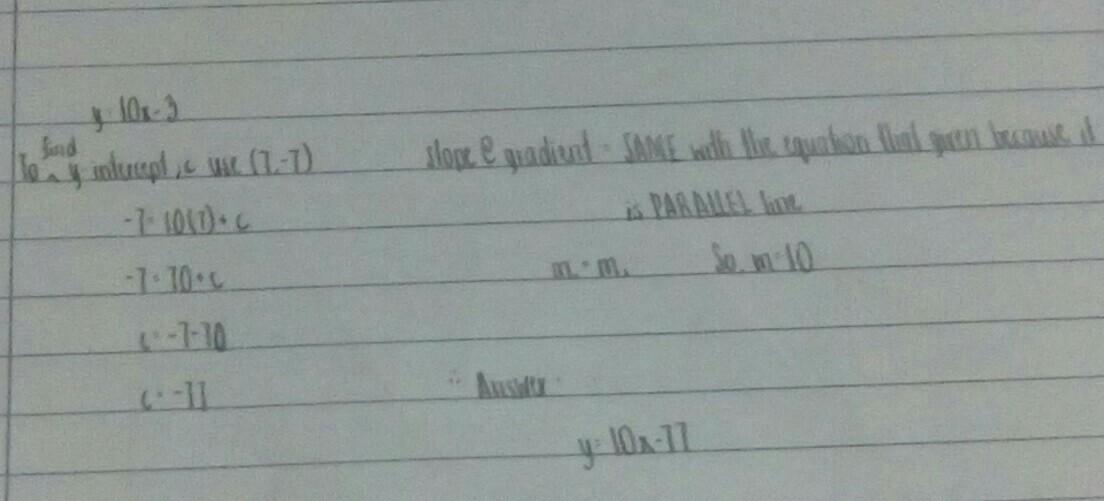 y=10x-3
To find y intercept, c use (7,-7)
slope @ gradient = SAME with the equation that given because it
is PARALLEL line
-7=10(7)+c
-7=70+c
m=m, So m=10
c=-7-70
c=-77
∴ Answer
y=10x-77